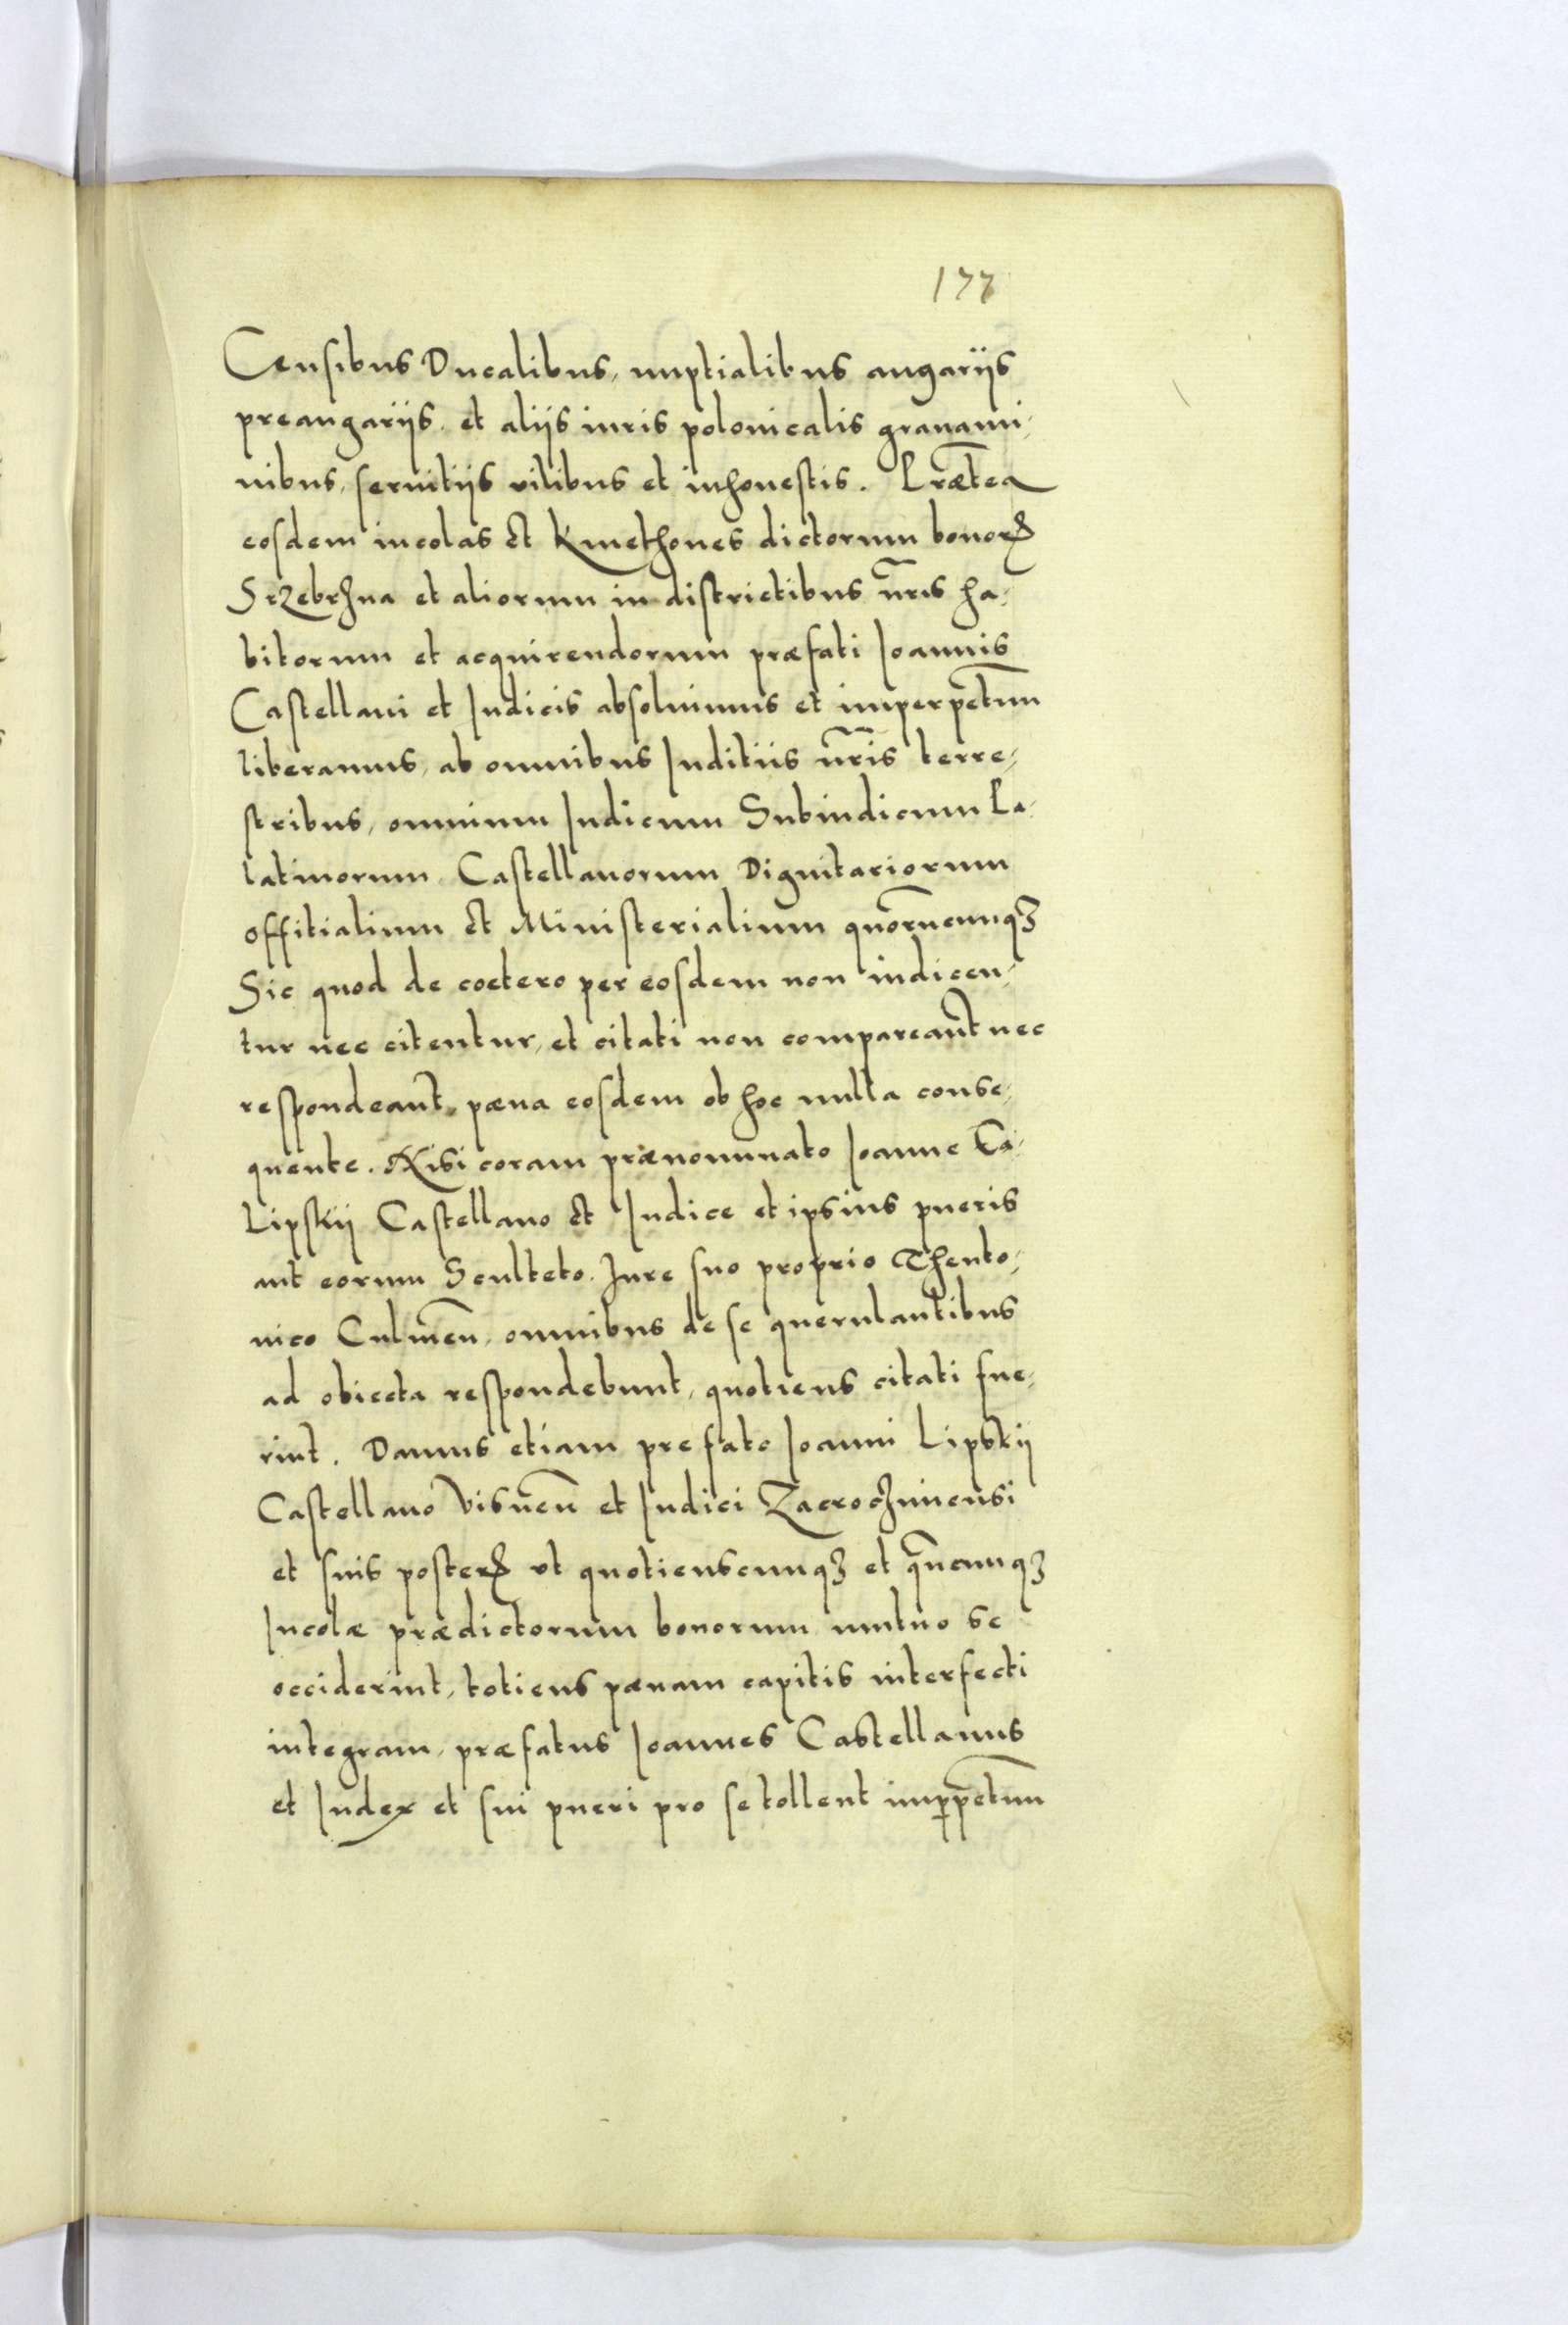 177
Censibus Ducalibus, nuptialibus angariis
preangariis, et aliis iuris polonicalis grauami,
nibus, seruitiis vilibus et inhonestis. Præt̃ea
eosdem incolas et Kmethones dictorum bonorꝝ
Srzebrzna et aliorum in districtibus nr̃is ha,
bitorum et acquirendorum præfati Ioannis
Castellani et Iudicis absoluimus et imperpetuũ
liberamus, ab omnibus Iuditiis nr̃is terre,
stribus, omnium Iudicum Subiudicum Pa,
latinorum Castellanorum Dignitariorum
offitialium et Ministerialium quorũcunqꝫ
Sic quod de coetero per eosdem non iudicen,
tur nec citentur, et citati non compareañt nec
respondeañt, pæna eosdem ob hoc nulla conse,
quente. Nisi coram prænominato Ioanne Ca,
Lipskii Castellano et Iudice et ipsius pueris
aut eorum Sculteto. Iure suo proprio Theuto,
nico Culmeñ, omnibus de se querulantibus
ad obiecta respondebunt, quotiens citati fue,
rint. Damus etiam prefato Ioanni Lipskii
Castellano Visneñ et Iudici Zacroczimensi
et suis posterꝝ vt quotienscunqꝫ et qñcunqꝫ
Incolæ prædictorum bonorum mutuo se
occiderint, totiens pænam capitis interfecti
integram, præfatus Ioannes Castellanus
et Iudex et sui pueri pro se tollent imꝑpetuũ